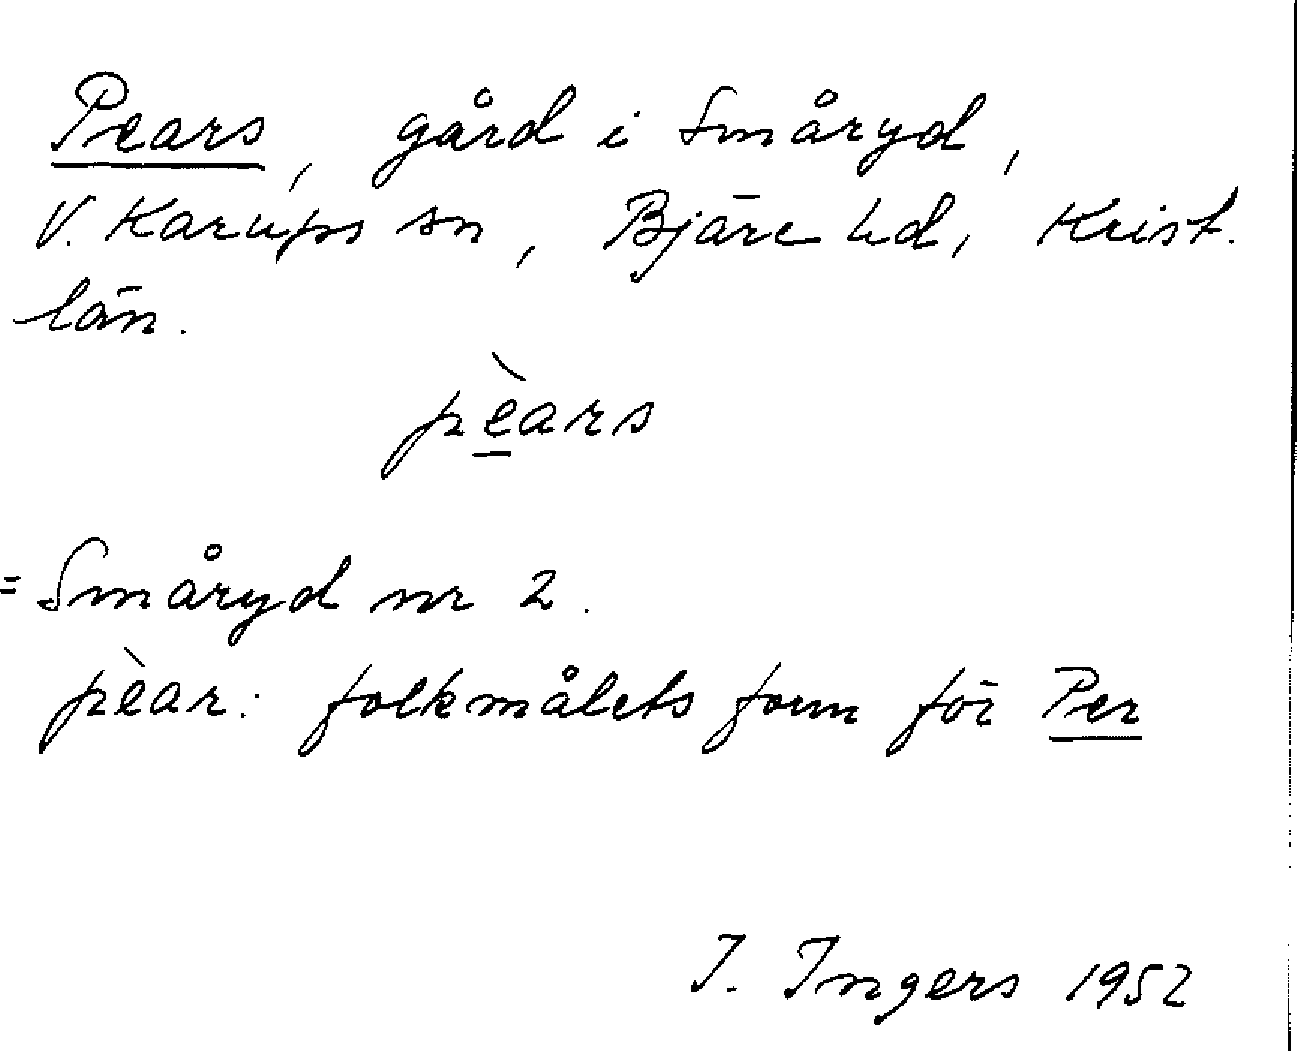 Pears, gård i Småryd,
V. Karups sn, Bjäre hd, Krist.
län.
pè̱ars
= Småryd nr 2.
pèar: folkmålets form för Per
I. Ingers 1952